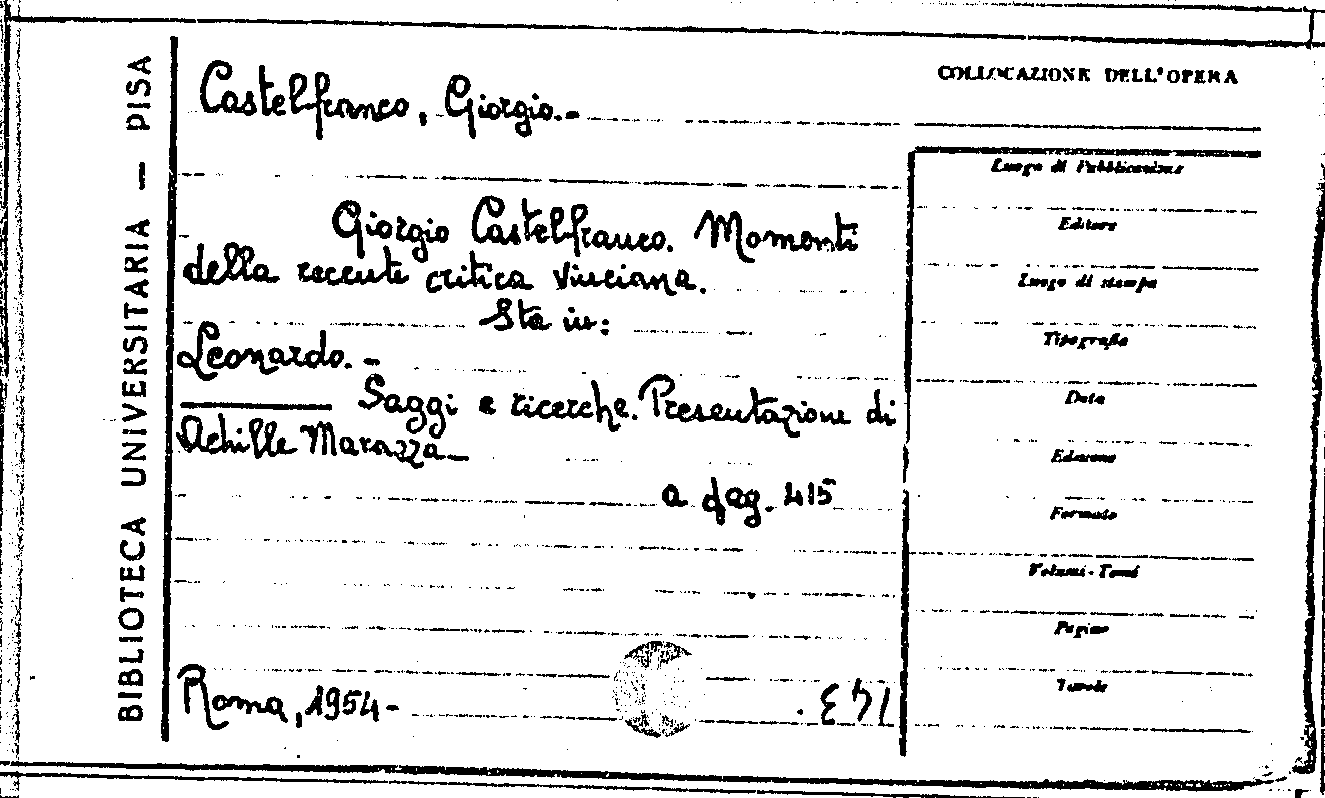 BIBLIOTECA UNIVERSITARIA — PISA
Castelfranco, Giorgio.-
Giorgio Castelfranco. Momenti
della recente critica vinciana.
Sta in:
Leonardo.-
Saggi e ricerche. Presentazione di
Achille Marazza—
a pag. 415
Roma, 1954-
143.
COLLOCAZIONE DELL'OPERA
Luogo di Pubblicazione
Editore
Luogo di stampa
Tipografia
Data
Edizione
Formato
Volumi - Tomi
Pagine
Tavole